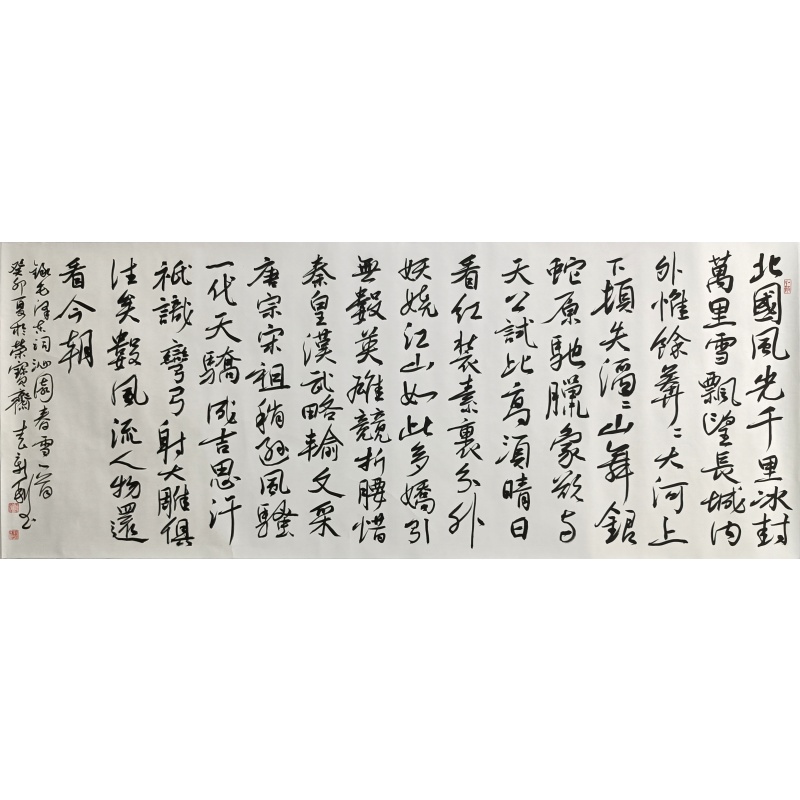 北國風光千里冰封
萬里雪飄望長城内
外惟餘莽〻大河上
下頓失滔〻山舞銀
蛇原馳臘象欲與
天公試比高須晴日
看紅裝素裹分外
妖嬈江山如此多嬌引
無數英雄競折腰惜
秦皇漢武略輸文采
唐宗宋祖稍遜風騷
一代天驕成吉思汗
祇識彎弓射大雕俱
往矣數風流人物還
看今朝
錄毛澤東詞沁園春雪一首
癸卯夏於榮寶齋